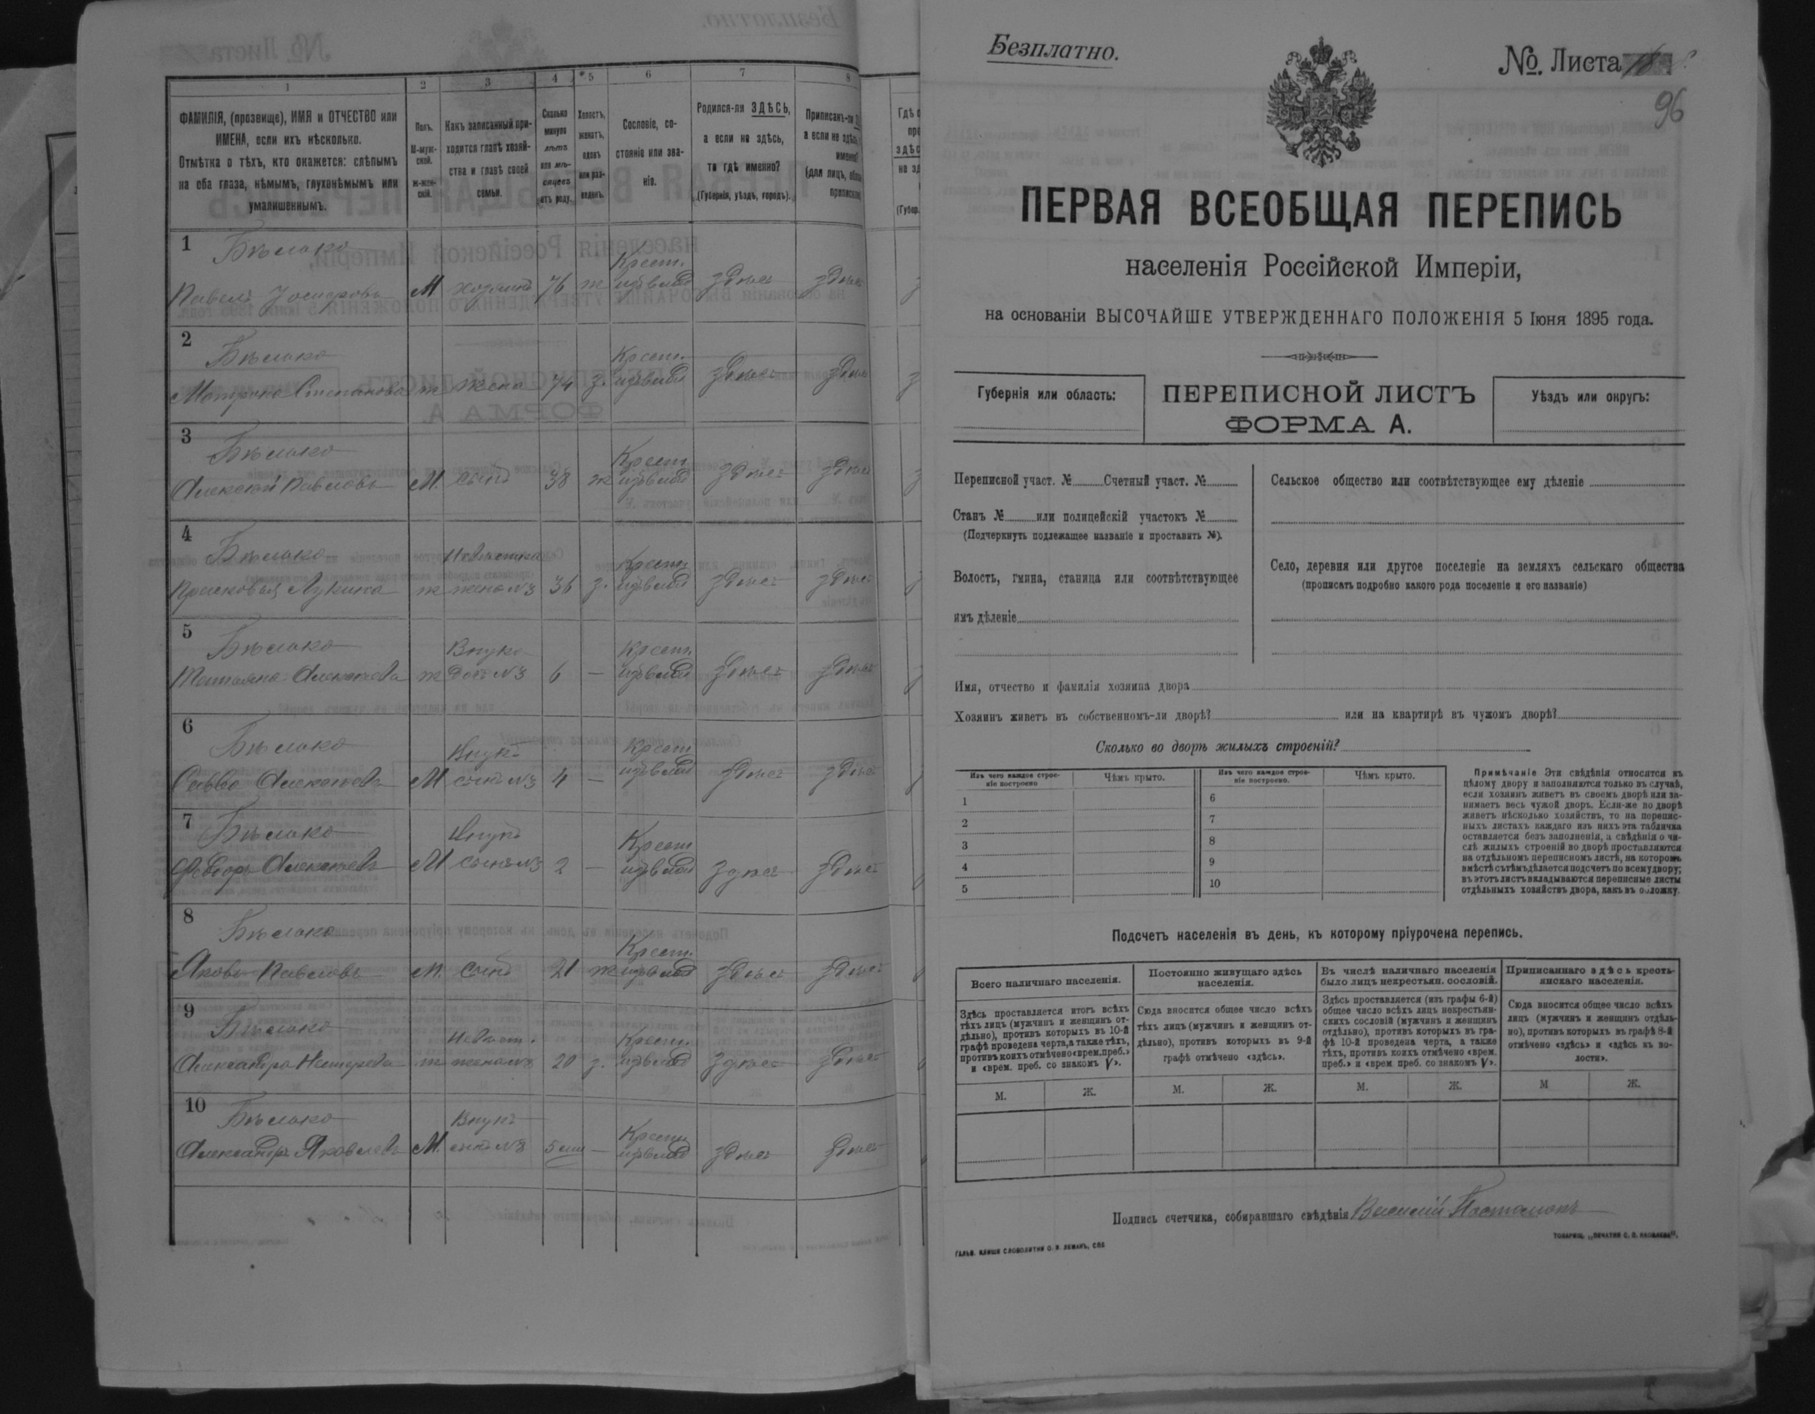 1
2
3
4
*5
6
7
8
ФАМИЛІЯ, (прозвище), ИМЯ и ОТЧЕСТВО или
ИМЕНА, если ихъ нѣсколько.
Отмѣтка о тѣхъ, кто окажется: слѣпымъ
на оба глаза, нѣмымъ, глухонѣмымъ или
умалишеннымъ.
Полъ.
М-муж-
ской.
ж-жен-
скій.
Какъ записанный при-
ходится главѣ хозяй-
ства и главѣ своей
семьи.
Сколько
минуло
лѣтъ
или мѣ-
сяцевъ
отъ роду.
Холостъ,
женатъ,
вдовъ
или раз-
веденъ.
Сословіе, со-
стояніе или зва-
ніе.
Родился-ли ЗДѢСЬ,
а если не здѣсь,
то гдѣ именно?
(Губернія, уѣздъ, городъ).
Приписанъ-ли
а если не здѣсь,
именно?
(для лицъ,
1 Бѣлако
Павелъ М хозяинъ 76 ж Крест. изъ влад здѣсь здѣсь
2 Бѣлако
Матрена Степанова ж жена 74 з. Крест. изъ влад здѣсь здѣсь
3 Бѣлако
Алексѣй Павловъ М. сынъ 38 ж Крест. изъ влад здѣсь здѣсь
4 Бѣлако
Прасковья Лукина ж жена №3 36 з. Крест. изъ влад здѣсь здѣсь
5 Бѣлако
Татьяна Алексѣева ж Внука доч №3 6 — Крест. изъ влад здѣсь здѣсь
6 Бѣлако
Савва Алексѣевъ М Внукъ сынъ №3 4 — Крест. изъ влад здѣсь здѣсь
7 Бѣлако
Ѳедоръ Алексѣевъ М Внукъ сынъ №3 2 — Крест. изъ влад здѣсь здѣсь
8 Бѣлако
Яковъ Павловъ М. сынъ 21 ж Крест. изъ влад здѣсь здѣсь
9 Бѣлако
Александра ж Невѣст. 20 з. Крест. изъ влад здѣсь здѣсь
10 Бѣлако
Александръ Яковлевъ М. Внукъ 5 — Крест. изъ влад здѣсь здѣсь
Безплатно.
№ Листа
96
ПЕРВАЯ ВСЕОБЩАЯ ПЕРЕПИСЬ
населенія Россійской Имперіи,
на основаніи ВЫСОЧАЙШЕ УТВЕРЖДЕННАГО ПОЛОЖЕНІЯ 5 Іюня 1895 года.
Губернія или область:
ПЕРЕПИСНОЙ ЛИСТЪ
ФОРМА А.
Уѣздъ или округъ:
Переписной участ. № Счетный участ. №
Станъ № или полицейскій участокъ №
(Подчеркнуть подлежащее названіе и проставить №).
Волость, гмина, станица или соотвѣтствующее
имъ дѣленіе
Сельское общество или соотвѣтствующее ему дѣленіе
Село, деревня или другое поселеніе на земляхъ сельскаго общества
(прописать подробно какого рода поселеніе и его названіе)
Имя, отчество и фамилія хозяина двора
Хозяинъ живетъ въ собственномъ-ли дворѣ? или на квартирѣ въ чужомъ дворѣ?
Сколько во дворѣ жилыхъ строеній?
Изъ чего каждое строе-
ніе построено
Чѣмъ крыто.
Изъ чего каждое строе-
ніе построено.
Чѣмъ крыто.
1
2
3
4
5
6
7
8
9
10
Примѣчаніе Эти свѣдѣнія относятся къ
цѣлому двору и заполняются только въ случаѣ,
если хозяинъ живетъ въ своемъ дворѣ или за-
нимаетъ весь чужой дворъ. Если-же во дворѣ
живетъ нѣсколько хозяйствъ, то на перепис-
ныхъ листахъ каждаго изъ нихъ эта табличка
оставляется безъ заполненія, а свѣдѣнія о чи-
слѣ жилыхъ строеній во дворѣ проставляются
на отдѣльномъ переписномъ листѣ, на которомъ
вмѣстѣ съ тѣмъ дѣлается подсчетъ по всему двору;
въ этотъ листъ вкладываются переписные листы
отдѣльныхъ хозяйствъ двора, какъ въ обложку.
Подсчетъ населенія въ день, къ которому пріурочена перепись.
Всего наличнаго населенія.
Здѣсь проставляется итогъ всѣхъ
тѣхъ лицъ (мужчинъ и женщинъ от-
дѣльно), противъ которыхъ въ 10-й
графѣ проведена черта, а также тѣхъ,
противъ коихъ отмѣчено «врем. преб.»
и «врем. преб. со знакомъ V».
Постоянно живущаго здѣсь
населенія.
Сюда вносится общее число всѣхъ
тѣхъ лицъ (мужчинъ и женщинъ от-
дѣльно), противъ которыхъ въ 9-й
графѣ отмѣчено «здѣсь».
Въ числѣ наличнаго населенія
было лицъ некрестьян. сословій.
Здѣсь проставляется (изъ графы 6-й)
общее число всѣхъ лицъ некрестьян-
скихъ сословій (мужчинъ и женщинъ
отдѣльно), противъ которыхъ въ гра-
фѣ 10-й проведена черта, а также
тѣхъ, противъ коихъ отмѣчено «врем.
преб.» и «врем. преб. со знакомъ V».
Приписаннаго здѣсь кресть-
янскаго населенія.
Сюда вносится общее число всѣхъ
лицъ (мужчинъ и женщинъ отдѣль-
но), противъ которыхъ въ графѣ 8-й
отмѣчено «здѣсь» и «здѣсь въ во-
лости».
М. Ж. М. Ж. М. Ж. М Ж.
Подпись счетчика, собиравшаго свѣдѣнія Василій
ГАЛЬВ. КЛИШЕ СЛОВОЛИТНИ О. И. ЛЕМАНЪ, СПБ
ТОВАРИЩ. „ПЕЧАТНЯ С. П. ЯКОВЛЕВА".